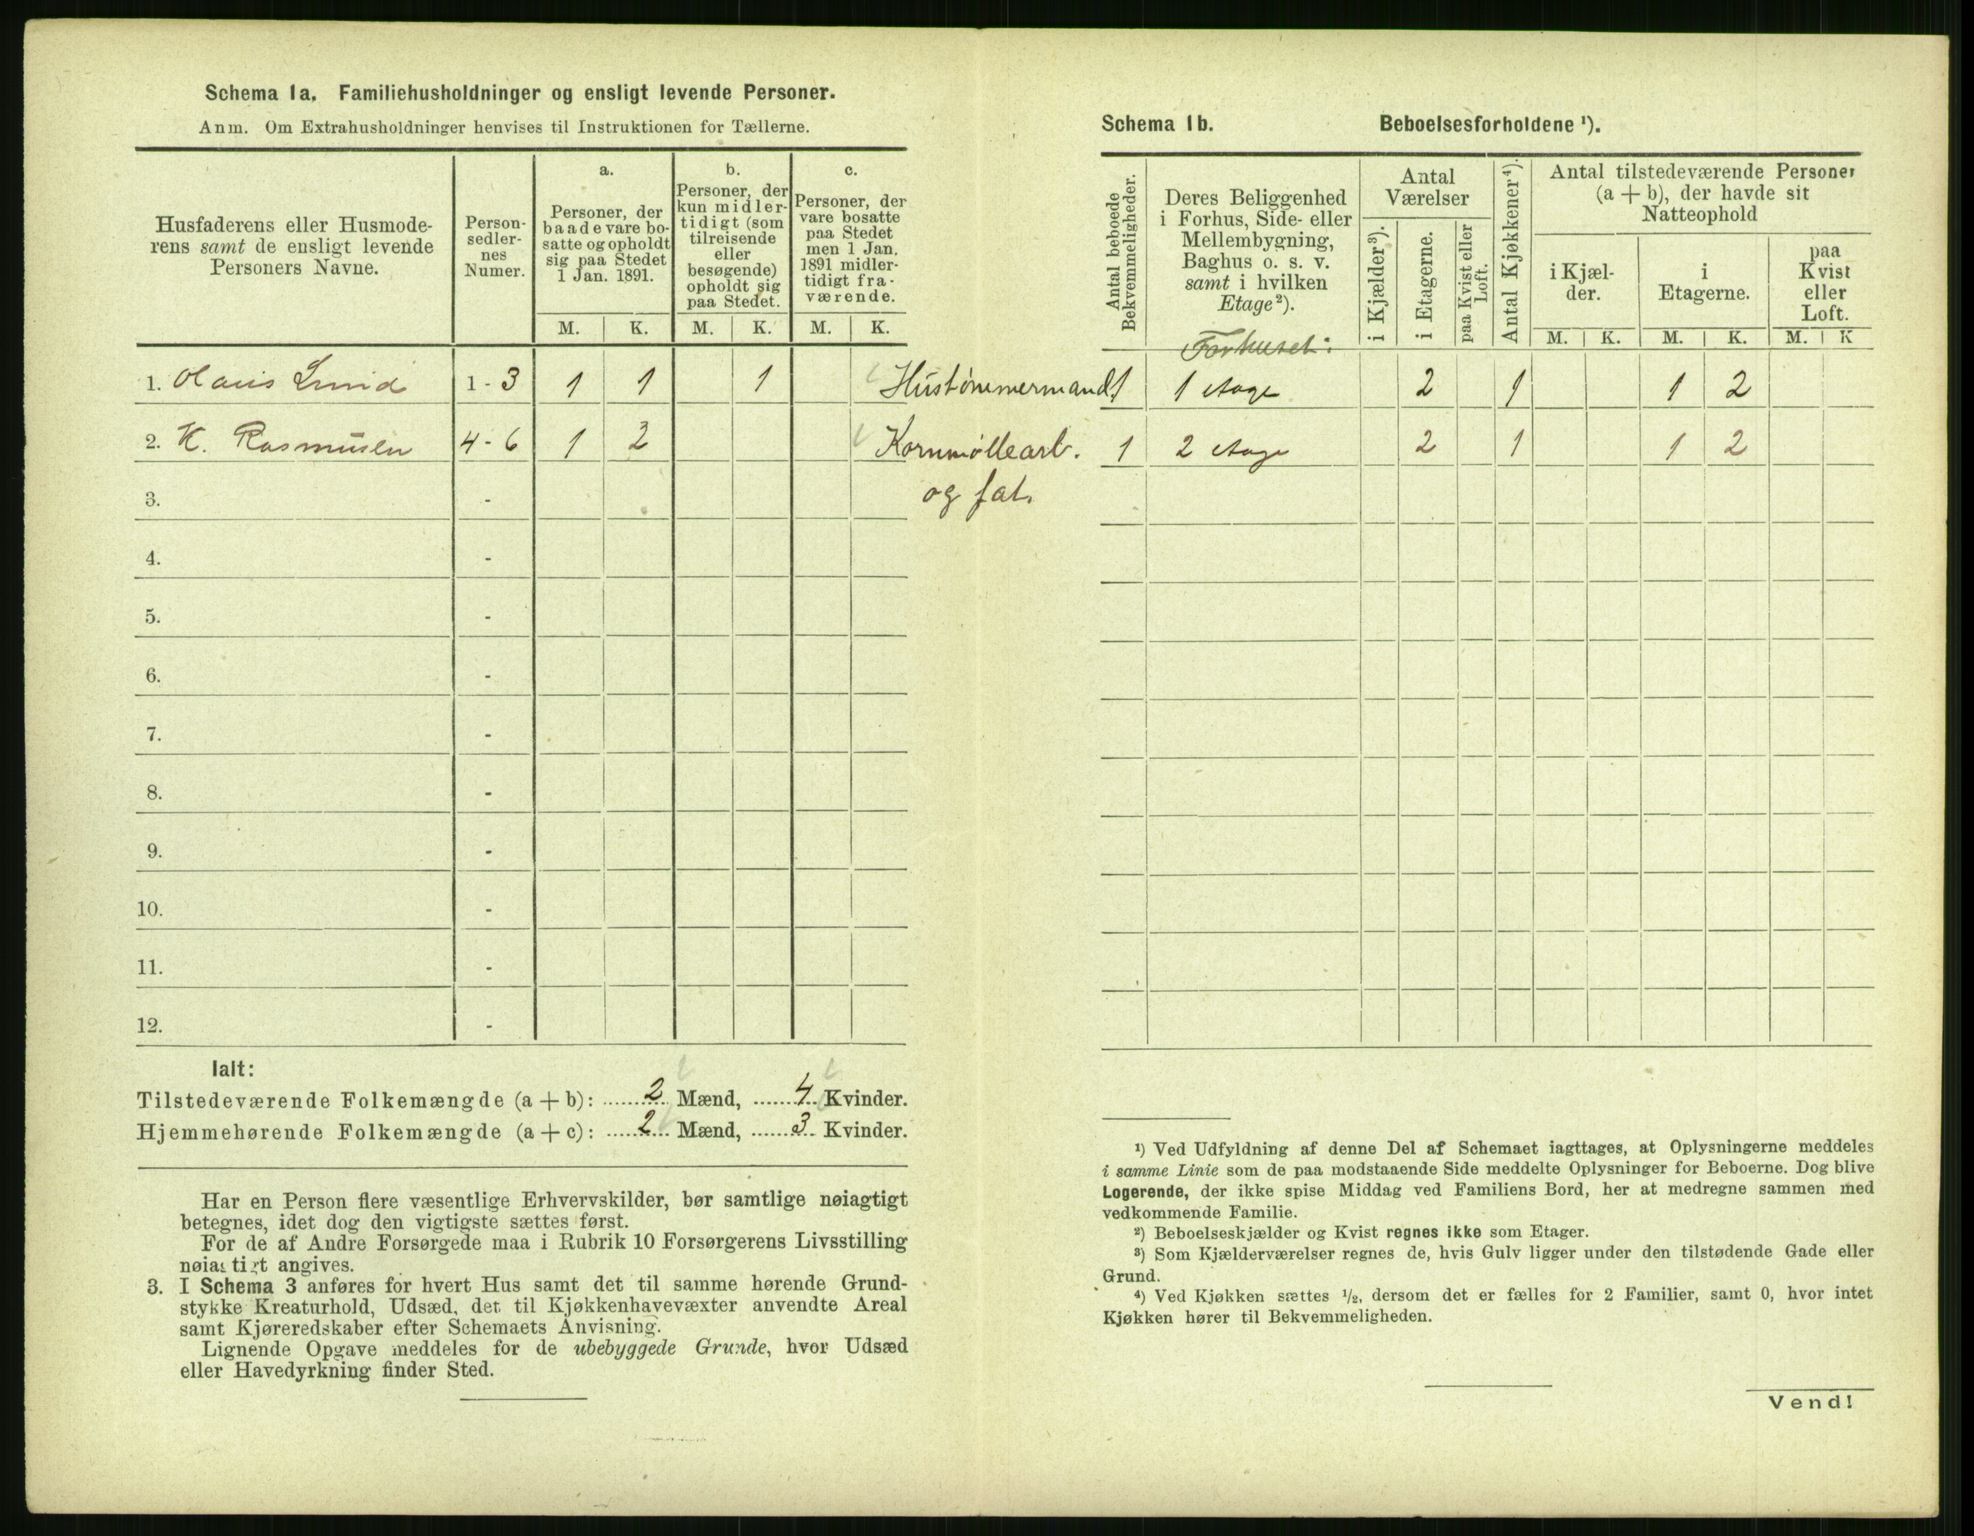 Schema 1a. Familiehusholdninger og ensligt levende Personer.
Anm. Om Extrahusholdninger henvises til Instruktionen for Tællerne.
Husfaderens eller Husmode-
rens samt de ensligt levende
Personers Navne.
Person-
sedler-
nes
Numer.
a.
Personer, der
baade vare bo-
satte og opholdt
sig paa Stedet
1 Jan. 1891.
b.
Personer, der
kun midler-
tidigt (som
tilreisende
eller
besøgende)
opholdt sig
paa Stedet.
c.
Personer, der
vare bosatte
paa Stedet
men 1 Jan.
1891 midler-
tidigt fra-
værende.
M. K. M. K. M. K.
1. Olaus Lund 1 - 3 1 1 1 Hustømmermand
2. K. Rasmusen 4 - 6 1 2 Kornmøllearb.
og fat.
3. -
4. -
5. -
6. -
7. -
8. -
9. -
10. -
11. -
12. -
Ialt:
Tilstedeværende Folkemængde (a + b): 2 Mænd, 4 Kvinder.
Hjemmehørende Folkemængde (a + c): 2 Mænd, 3 Kvinder.
Har en Person flere væsentlige Erhvervskilder, bør samtlige nøiagtigt
betegnes, idet dog den vigtigste sættes først.
For de af Andre Forsørgede maa i Rubrik 10 Forsørgerens Livsstilling
nøiagtigt angives.
3. I Schema 3 anføres for hvert Hus samt det til samme hørende Grund-
stykke Kreaturhold, Udsæd, det til Kjøkkenhavevæxter anvendte Areal
samt Kjøreredskaber efter Schemaets Anvisning.
Lignende Opgave meddeles for de ubebyggede Grunde, hvor Udsæd
eller Havedyrkning finder Sted.
Schema 1b. Beboelsesforholdene ¹).
Antal beboede
Bekvemmeligheder.
Deres Beliggenhed
i Forhus, Side- eller
Mellembygning,
Baghus o. s. v.
samt i hvilken
Etage²).
Antal
Værelser
i Kjælder³).
i Etagerne.
paa Kvist eller
Loft.
Antal Kjøkkener⁴).
Antal tilstedeværende Personer
(a + b), der havde sit
Natteophold
i Kjæl-
der.
i
Etagerne.
paa
Kvist
eller
Loft.
M. K. M. K. M. K
Forhuset:
1 1 Etage 2 1 1 2
1 2 Etage 2 1 1 2
¹) Ved Udfyldning af denne Del af Schemaet iagttages, at Oplysningerne meddeles
i samme Linie som de paa modstaaende Side meddelte Oplysninger for Beboerne. Dog blive
Logerende, der ikke spise Middag ved Familiens Bord, her at medregne sammen med
vedkommende Familie.
²) Beboelseskjælder og Kvist regnes ikke som Etager.
³) Som Kjælderværelser regnes de, hvis Gulv ligger under den tilstødende Gade eller
Grund.
⁴) Ved Kjøkken sættes ½, dersom det er fælles for 2 Familier, samt 0, hvor intet
Kjøkken hører til Bekvemmeligheden.
Vend!